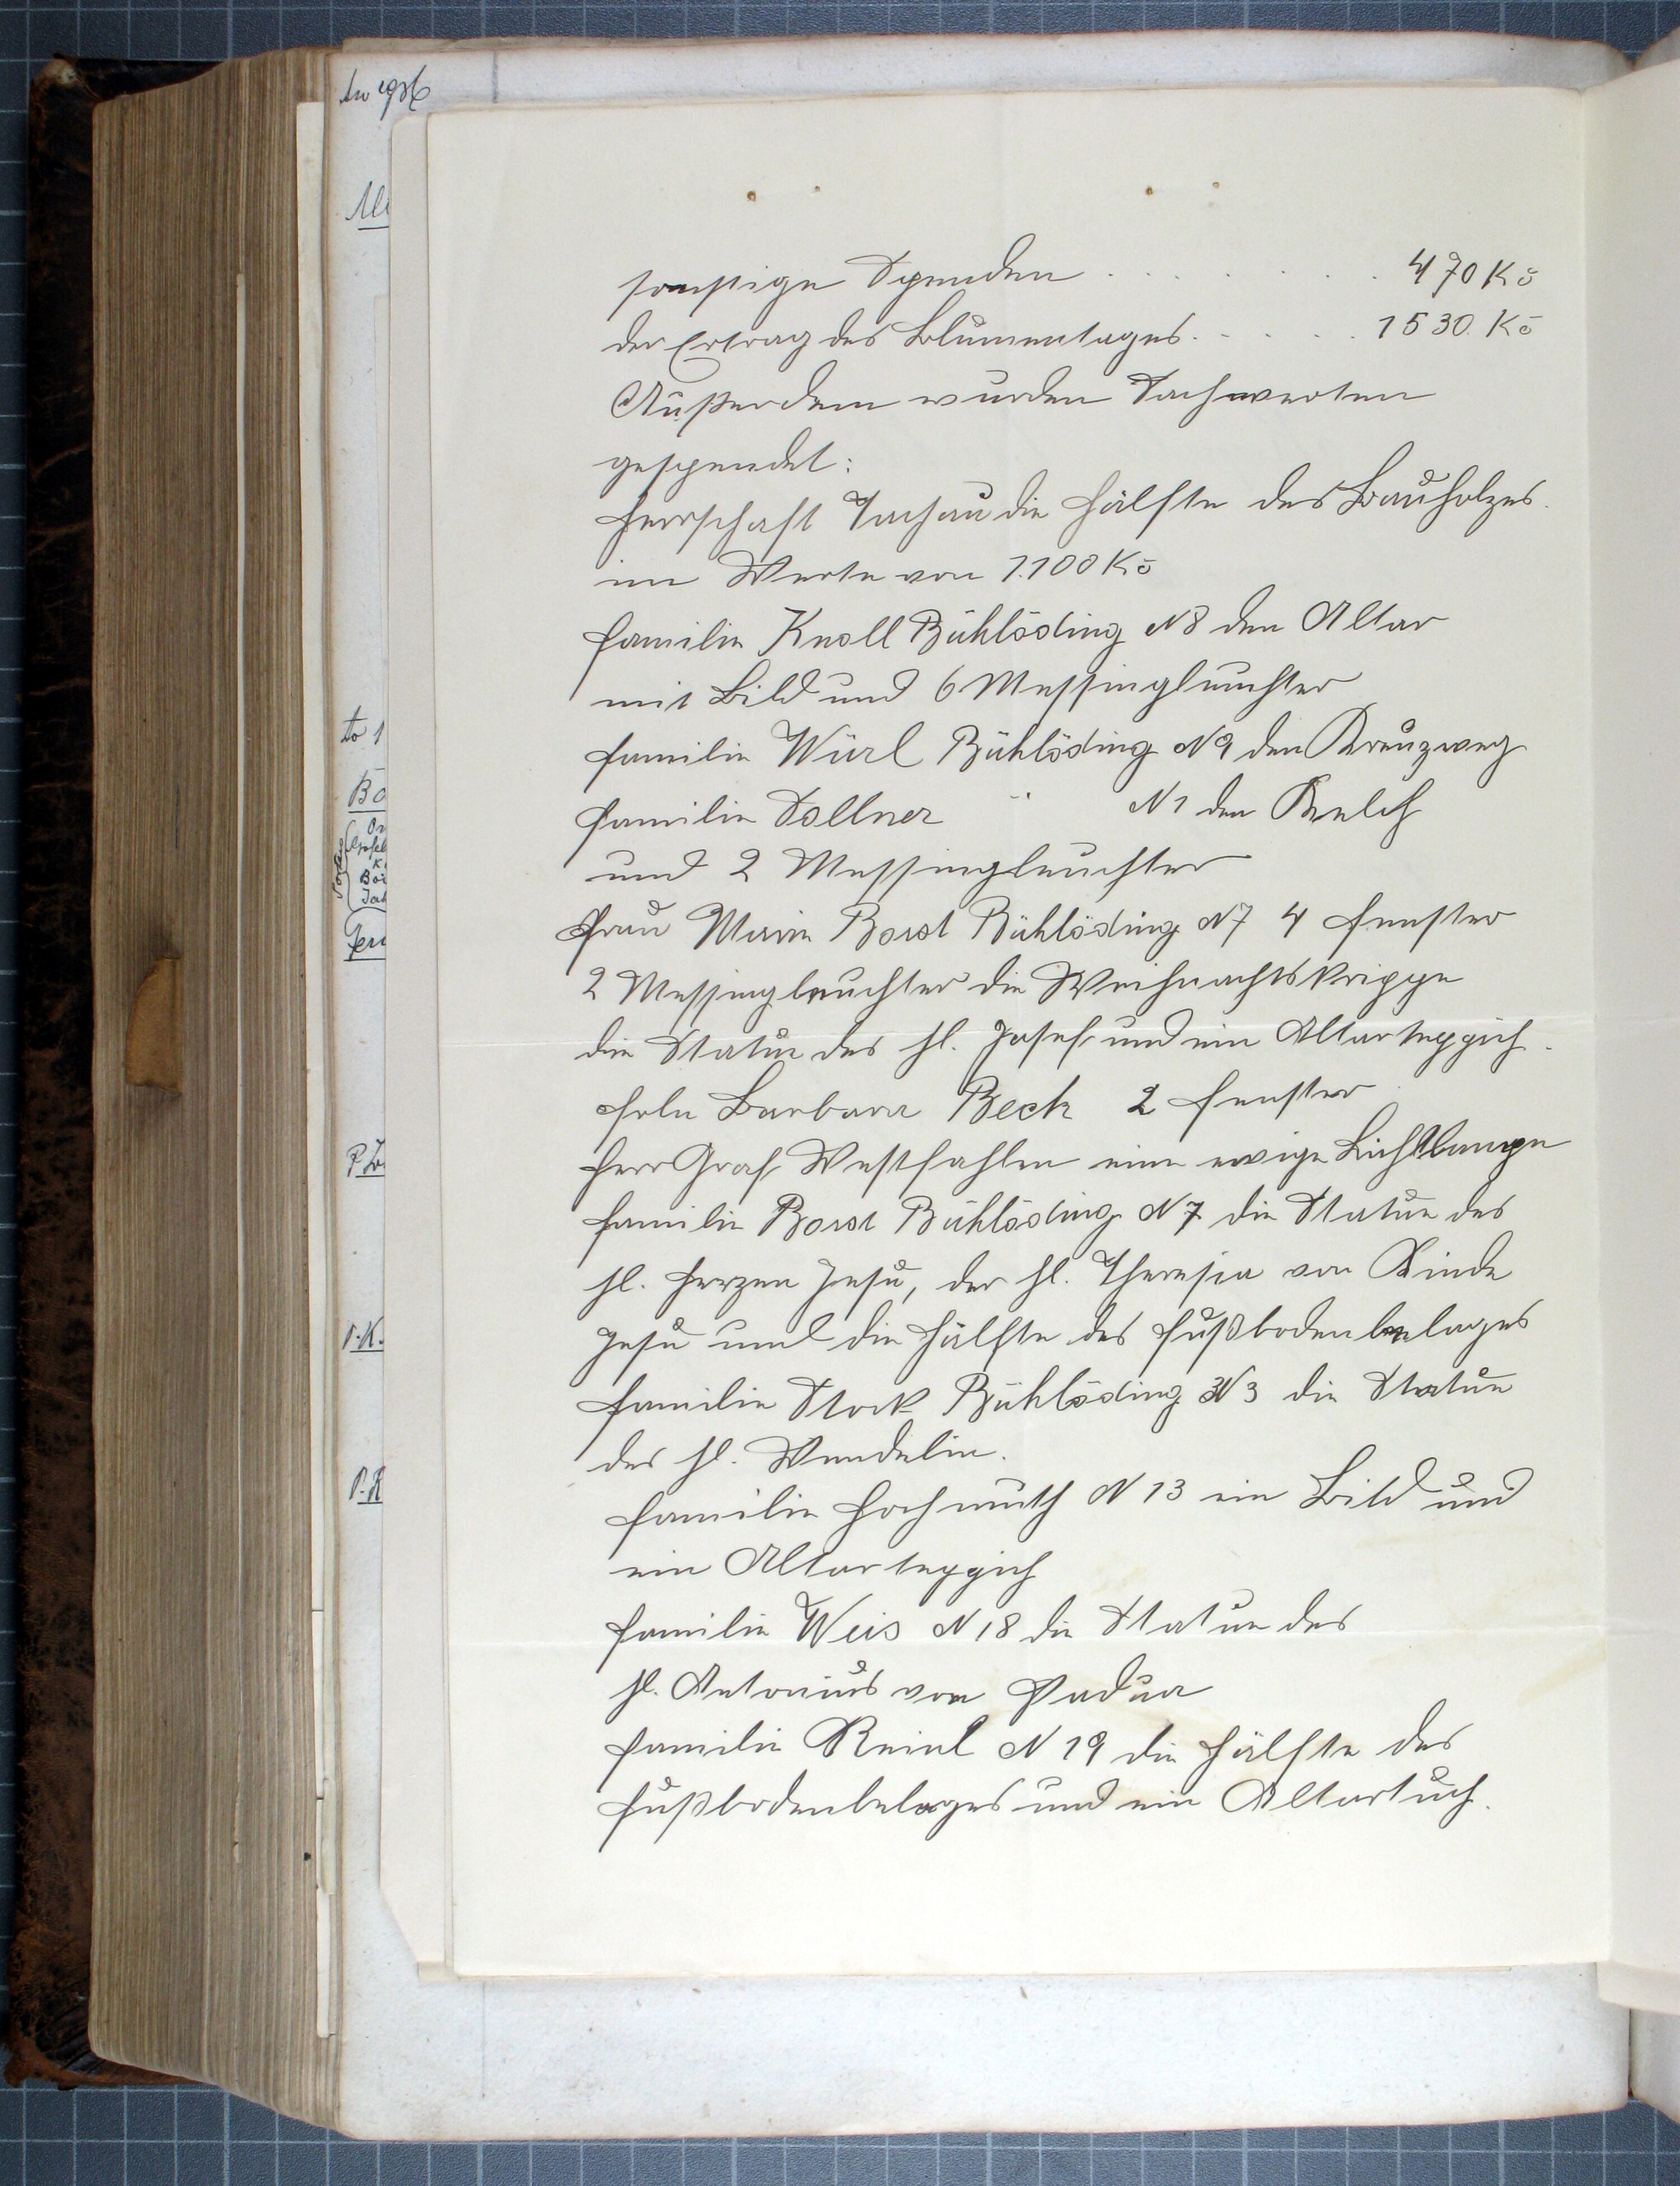 An 1936
sonstige Spenden . . . . . . . . 470 Kč
der Ertrag des Blumentages. . . . . 1530. Kč
Außerdem wurden Sachwerten
gespendet:
Herrschaft Tachau die Hälfte des Bauholzes.
im Werte von 1.100 Kč
Familie Knoll Bühlöding N 8 den Altar
mit Bild und 6 Messingleuchter
Familie Würl Bühlöding N 9 den Kreuzweg
Familie Sollner " N 1 den Kelch
und 2 Messingleuchter
Frau Marie Borst Bühlöding N 7 4 Fenster
2 Messingleuchter die Weihnachtskrippe
die Statue des hl. Josef und ein Altarteppich.
Frln Barbara Beck 2 Fenster
Herr Graf Westfahlen eine ewige Lichtlampe
Familie Borst Bühlöding N 7 die Statue des
hl. Herzen Jesu, der hl. Theresia von Kinde
Jesu und die Hälfte des Fußbodenbelages
Familie Stock Bühlöding N 3 die Statue
des hl. Wendelin.
Familie Hochmuth N 13 ein Bild und
ein Altarteppich
Familie Weis N 18 die Statue des
hl. Antonius von Padua
Familie Reinl N 19 die Hälfte des
Fußbodenbelages und ein Altartuch.